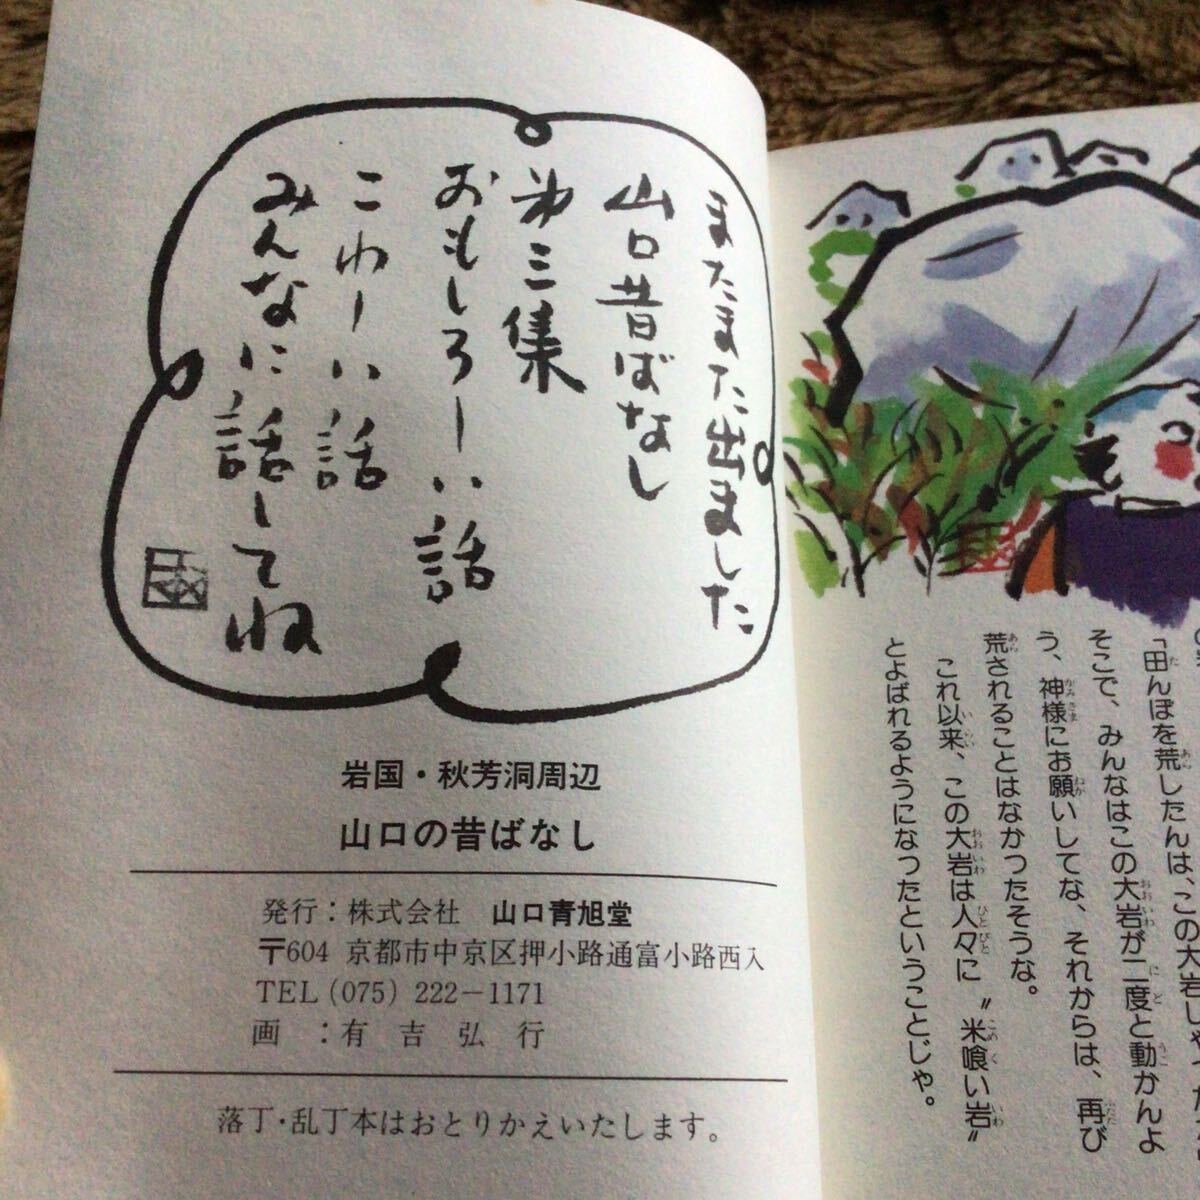 またまた出ました
山口昔ばなし
第三集
おもしろーい話
こわーい話
みんなに話してね
岩国・秋芳洞周辺
山口の昔ばなし
発行：株式会社 山口青旭堂
〒604 京都市中京区押小路通富小路西入
TEL (075) 222-1171
画 ：有吉弘行
落丁・乱丁本はおとりかえいたします。
「田んぼを荒したんは、この大岩じゃ
そこで、みんなはこの大岩が二度と動かんよ
う、神様にお願いしてな、それからは、再び
荒されることはなかったそうな。
これ以来、この大岩は人々に〝米喰い岩〟
とよばれるようになったということじゃ。